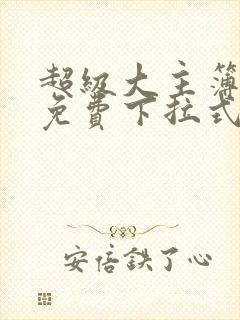 超级大主簿
免费下拉式
安倍鉄了心